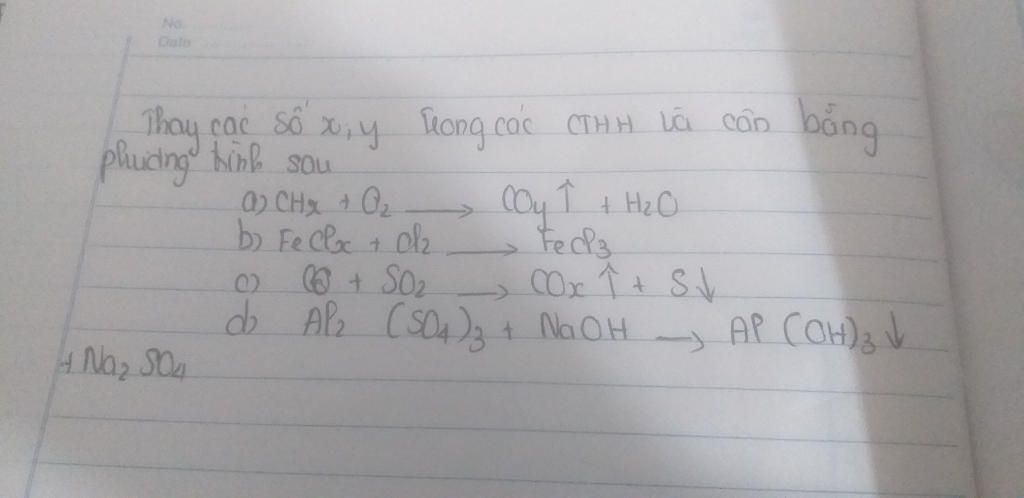 No.
Date
Thay các số x, y trong các CTHH và cân bằng
phương trình sau
a) CHx + O₂ ⟶ COy ↑ + H₂O
b) FeClx + Cl₂ ⟶ FeCl₃
c) + SO₂ ⟶ COx ↑ + S↓
d) Al₂ (SO₄)₃ + NaOH ⟶ Al (OH)₃ ↓
+ Na₂ SO₄